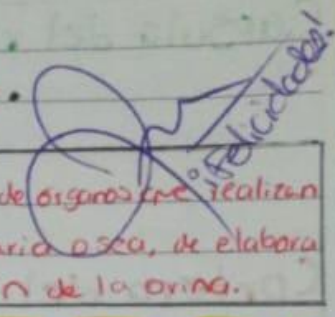 ¡Felicidades!
de organos que realizan
aria osea, de elabora
n de la orina.